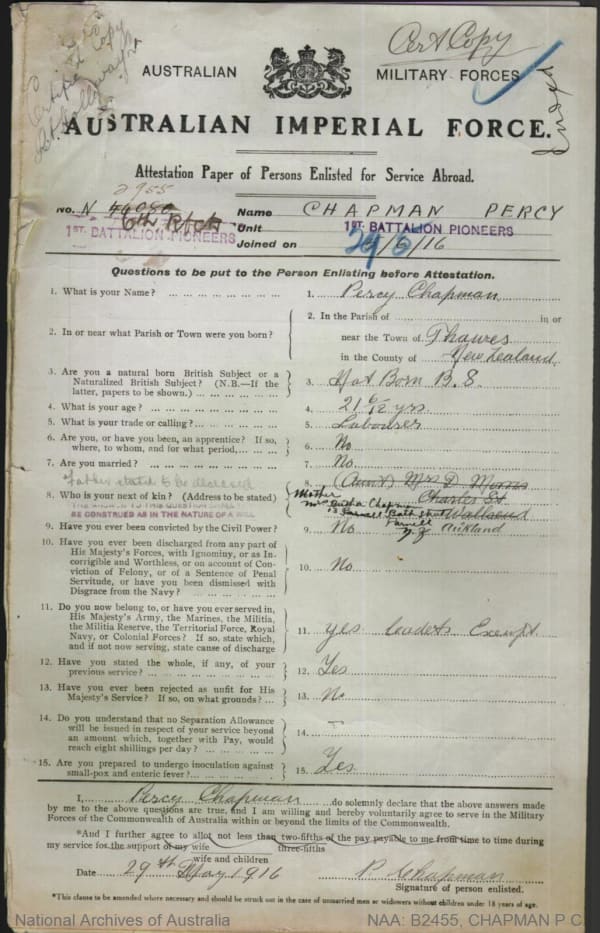 Cert Copy
AUSTRALIAN MILITARY FORCES
AUSTRALIAN IMPERIAL FORCE.
Attestation Paper of Persons Enlisted for Service Abroad.
2955
No. N Name CHAPMAN PERCY
6th Rfcts Unit 1ST. BATTALION PIONEERS
1ST. BATTALION PIONEERS Joined on 29/5/16
Questions to be put to the Person Enlisting before Attestation.
1. What is your Name? ... 1. Percy Chapman
2. In or near what Parish or Town were you born? 2. In the Parish of ... in or
near the Town of Thawres
in the County of New Zealand
3. Are you a natural born British Subject or a
Naturalized British Subject? (N.B.—If the
latter, papers to be shown.) ... 3. Nat Born B.S.
4. What is your age? ... 4. 21 6/12 yrs.
5. What is your trade or calling? ... 5. Labourer
6. Are you, or have you been, an apprentice? If so,
where, to whom, and for what period, ... 6. No
7. Are you married? ... 7. No
Father stated to be deceased
8. Who is your next of kin? (Address to be stated) 8. (Aunt) Mrs D. Morris
Charles St
Wallsend
Mother
Mrs Chapman
Parnell
N.Z. Aukland
BE CONSTRUED AS IN THE NATURE OF A WILL
9. Have you ever been convicted by the Civil Power? 9. No
10. Have you ever been discharged from any part of
His Majesty's Forces, with Ignominy, or as In-
corrigible and Worthless, or on account of Con-
viction of Felony, or of a Sentence of Penal
Servitude, or have you been dismissed with
Disgrace from the Navy? ... 10. No
11. Do you now belong to, or have you ever served in,
His Majesty's Army, the Marines, the Militia,
the Militia Reserve, the Territorial Force, Royal
Navy, or Colonial Forces? If so, state which,
and if not now serving, state cause of discharge 11. yes Cadets Exempt
12. Have you stated the whole, if any, of your
previous service? ... 12. Yes
13. Have you ever been rejected as unfit for His
Majesty's Service? If so, on what grounds? ... 13. No
14. Do you understand that no Separation Allowance
will be issued in respect of your service beyond
an amount which, together with Pay, would
reach eight shillings per day? ... 14. –
15. Are you prepared to undergo inoculation against
small-pox and enteric fever? ... 15. Yes
I, Percy Chapman do solemnly declare that the above answers made
by me to the above questions are true, and I am willing and hereby voluntarily agree to serve in the Military
Forces of the Commonwealth of Australia within or beyond the limits of the Commonwealth.
*And I further agree to allot not less than two-fifths of the pay payable to me from time to time during
three-fifths
my service for the support of my wife
wife and children
Date 29th May 1916 P. Chapman
Signature of person enlisted.
*This clause to be amended where necessary and should be struck out in the case of unmarried men or widowers without children under 18 years of age.
National Archives of Australia NAA: B2455, CHAPMAN P C